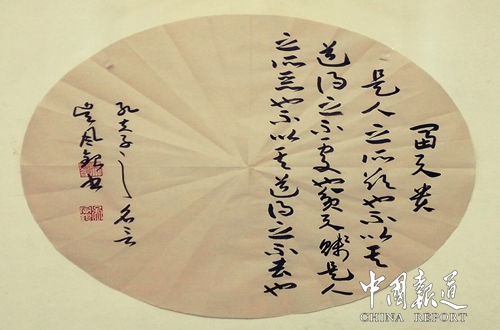 富与贵
是人之所欲也不以其
道得之不处也贫与贱是人
之所恶也不以其道得之不去也
孔夫子之名言
风 书
中國報道
CHINA REPORT